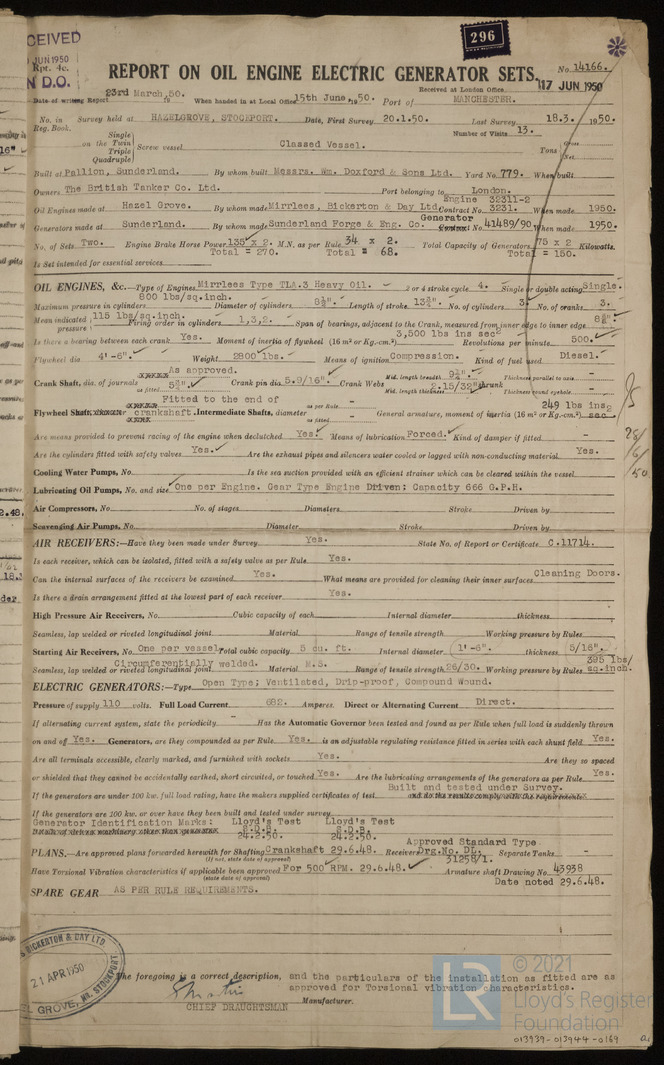 296
RECEIVED
JUN 1950
N D.O.
Rpt. 4c.
No. 14166.
REPORT ON OIL ENGINE ELECTRIC GENERATOR SETS.
Received at London Office 17 JUN 1950
Date of writing Report 23rd March, 50. When handed in at Local Office 15th June, 1950. Port of MANCHESTER.
No. in Reg. Book. Survey held at HAZELGROVE, STOCKPORT. Date, First Survey 20.1.50. Last Survey 18.3. 1950.
Number of Visits 13.
Single
on the Twin
Triple
Quadruple
Screw vessel Classed Vessel. Tons Gross
Net
Built at Pallion, Sunderland. By whom built Messrs. Wm. Doxford & Sons Ltd. Yard No. 779. When built
Owners The British Tanker Co. Ltd. Port belonging to London.
Oil Engines made at Hazel Grove. By whom made Mirrlees, Bickerton & Day Ltd. Engine 32311-2 Contract No. 3231. When made 1950.
Generators made at Sunderland. By whom made Sunderland Forge & Eng. Co. Generator No. 41489/90 When made 1950.
No. of Sets Two. Engine Brake Horse Power 135 x 2. M.N. as per Rule 34 x 2. Total Capacity of Generators 75 x 2 Kilowatts.
Total = 270. Total = 68. Total = 150.
Is Set intended for essential services
OIL ENGINES, &c.—Type of Engines Mirrlees Type TLA.3 Heavy Oil. 2 or 4 stroke cycle 4. Single or double acting Single.
Maximum pressure in cylinders 800 lbs/sq.inch. Diameter of cylinders 8½" Length of stroke 13¾" No. of cylinders 3. No. of cranks 3.
Mean indicated pressure 115 lbs/sq.inch. Firing order in cylinders 1,3,2. Span of bearings, adjacent to the Crank, measured from inner edge to inner edge
Is there a bearing between each crank Yes. Moment of inertia of flywheel (16 m² or Kg.-cm.²) 3,500 lbs ins sec² Revolutions per minute 500.
Flywheel dia. 4'-6". Weight 2800 lbs. Means of ignition Compression. Kind of fuel used Diesel.
Crank Shaft, dia. of journals As approved. as fitted 5¾" Crank pin dia. 5.9/16". Crank Webs Mid. length breadth 9½" Mid. length thickness 2.15/32" shrunk Thickness parallel to axis - Thickness round eyehole -
Flywheel Shaft, Fitted to the end of crankshaft. Intermediate Shafts, diameter as per Rule - as fitted - General armature, moment of inertia (16 m² or Kg.-cm.²) 249 lbs ins sec.
Are means provided to prevent racing of the engine when declutched Yes. Means of lubrication Forced. Kind of damper if fitted -
Are the cylinders fitted with safety valves Yes. Are the exhaust pipes and silencers water cooled or lagged with non-conducting material Yes.
Cooling Water Pumps, No. Is the sea suction provided with an efficient strainer which can be cleared within the vessel
Lubricating Oil Pumps, No. and size One per Engine. Gear Type Engine Driven: Capacity 666 G.P.H.
Air Compressors, No. No. of stages Diameters Stroke Driven by
Scavenging Air Pumps, No. Diameter Stroke Driven by
AIR RECEIVERS:—Have they been made under Survey Yes. State No. of Report or Certificate C.11714.
Is each receiver, which can be isolated, fitted with a safety valve as per Rule Yes.
Can the internal surfaces of the receivers be examined Yes. What means are provided for cleaning their inner surfaces Cleaning Doors.
Is there a drain arrangement fitted at the lowest part of each receiver Yes.
High Pressure Air Receivers, No. Cubic capacity of each Internal diameter thickness
Seamless, lap welded or riveted longitudinal joint Material Range of tensile strength Working pressure by Rules
Starting Air Receivers, No. One per vessel Total cubic capacity 5 cu. ft. Internal diameter 1'-6". thickness 5/16".
Seamless, lap welded or riveted longitudinal joint Circumferentially welded. Material M.S. Range of tensile strength 26/30. Working pressure by Rules 395 lbs/sq.inch.
ELECTRIC GENERATORS:—Type Open Type; Ventilated, Drip-proof, Compound Wound.
Pressure of supply 110 volts. Full Load Current 682. Amperes. Direct or Alternating Current Direct.
If alternating current system, state the periodicity - Has the Automatic Governor been tested and found as per Rule when full load is suddenly thrown
on and off Yes. Generators, are they compounded as per Rule Yes. is an adjustable regulating resistance fitted in series with each shunt field Yes.
Are all terminals accessible, clearly marked, and furnished with sockets Yes. Are they so spaced
or shielded that they cannot be accidentally earthed, short circuited, or touched Yes. Are the lubricating arrangements of the generators as per Rule Yes.
If the generators are under 100 kw. full load rating, have the makers supplied certificates of test Built and tested under Survey.
and do the results comply with the requirements
If the generators are 100 kw. or over have they been built and tested under survey
Generator Identification Marks: Lloyd's Test Lloyd's Test
24.2.50. 24.2.50.
PLANS.—Are approved plans forwarded herewith for Shafting Crankshaft 29.6.48. Receivers Approved Standard Type Drg.No. DL. 31258/1. Separate Tanks -
(If not, state date of approval)
Have Torsional Vibration characteristics if applicable been approved For 500 RPM. 29.6.48. Armature shaft Drawing No. 43938
(state date of approval) Date noted 29.6.48.
SPARE GEAR AS PER RULE REQUIREMENTS.
BICKERTON & DAY LTD
21 APR 1950
EL GROVE, NR. STOCKPORT
The foregoing is a correct description, and the particulars of the installation as fitted are as
approved for Torsional vibration characteristics.
CHIEF DRAUGHTSMAN Manufacturer.
© 2021
Lloyd's Register
Foundation
LR
013939-013944-0169